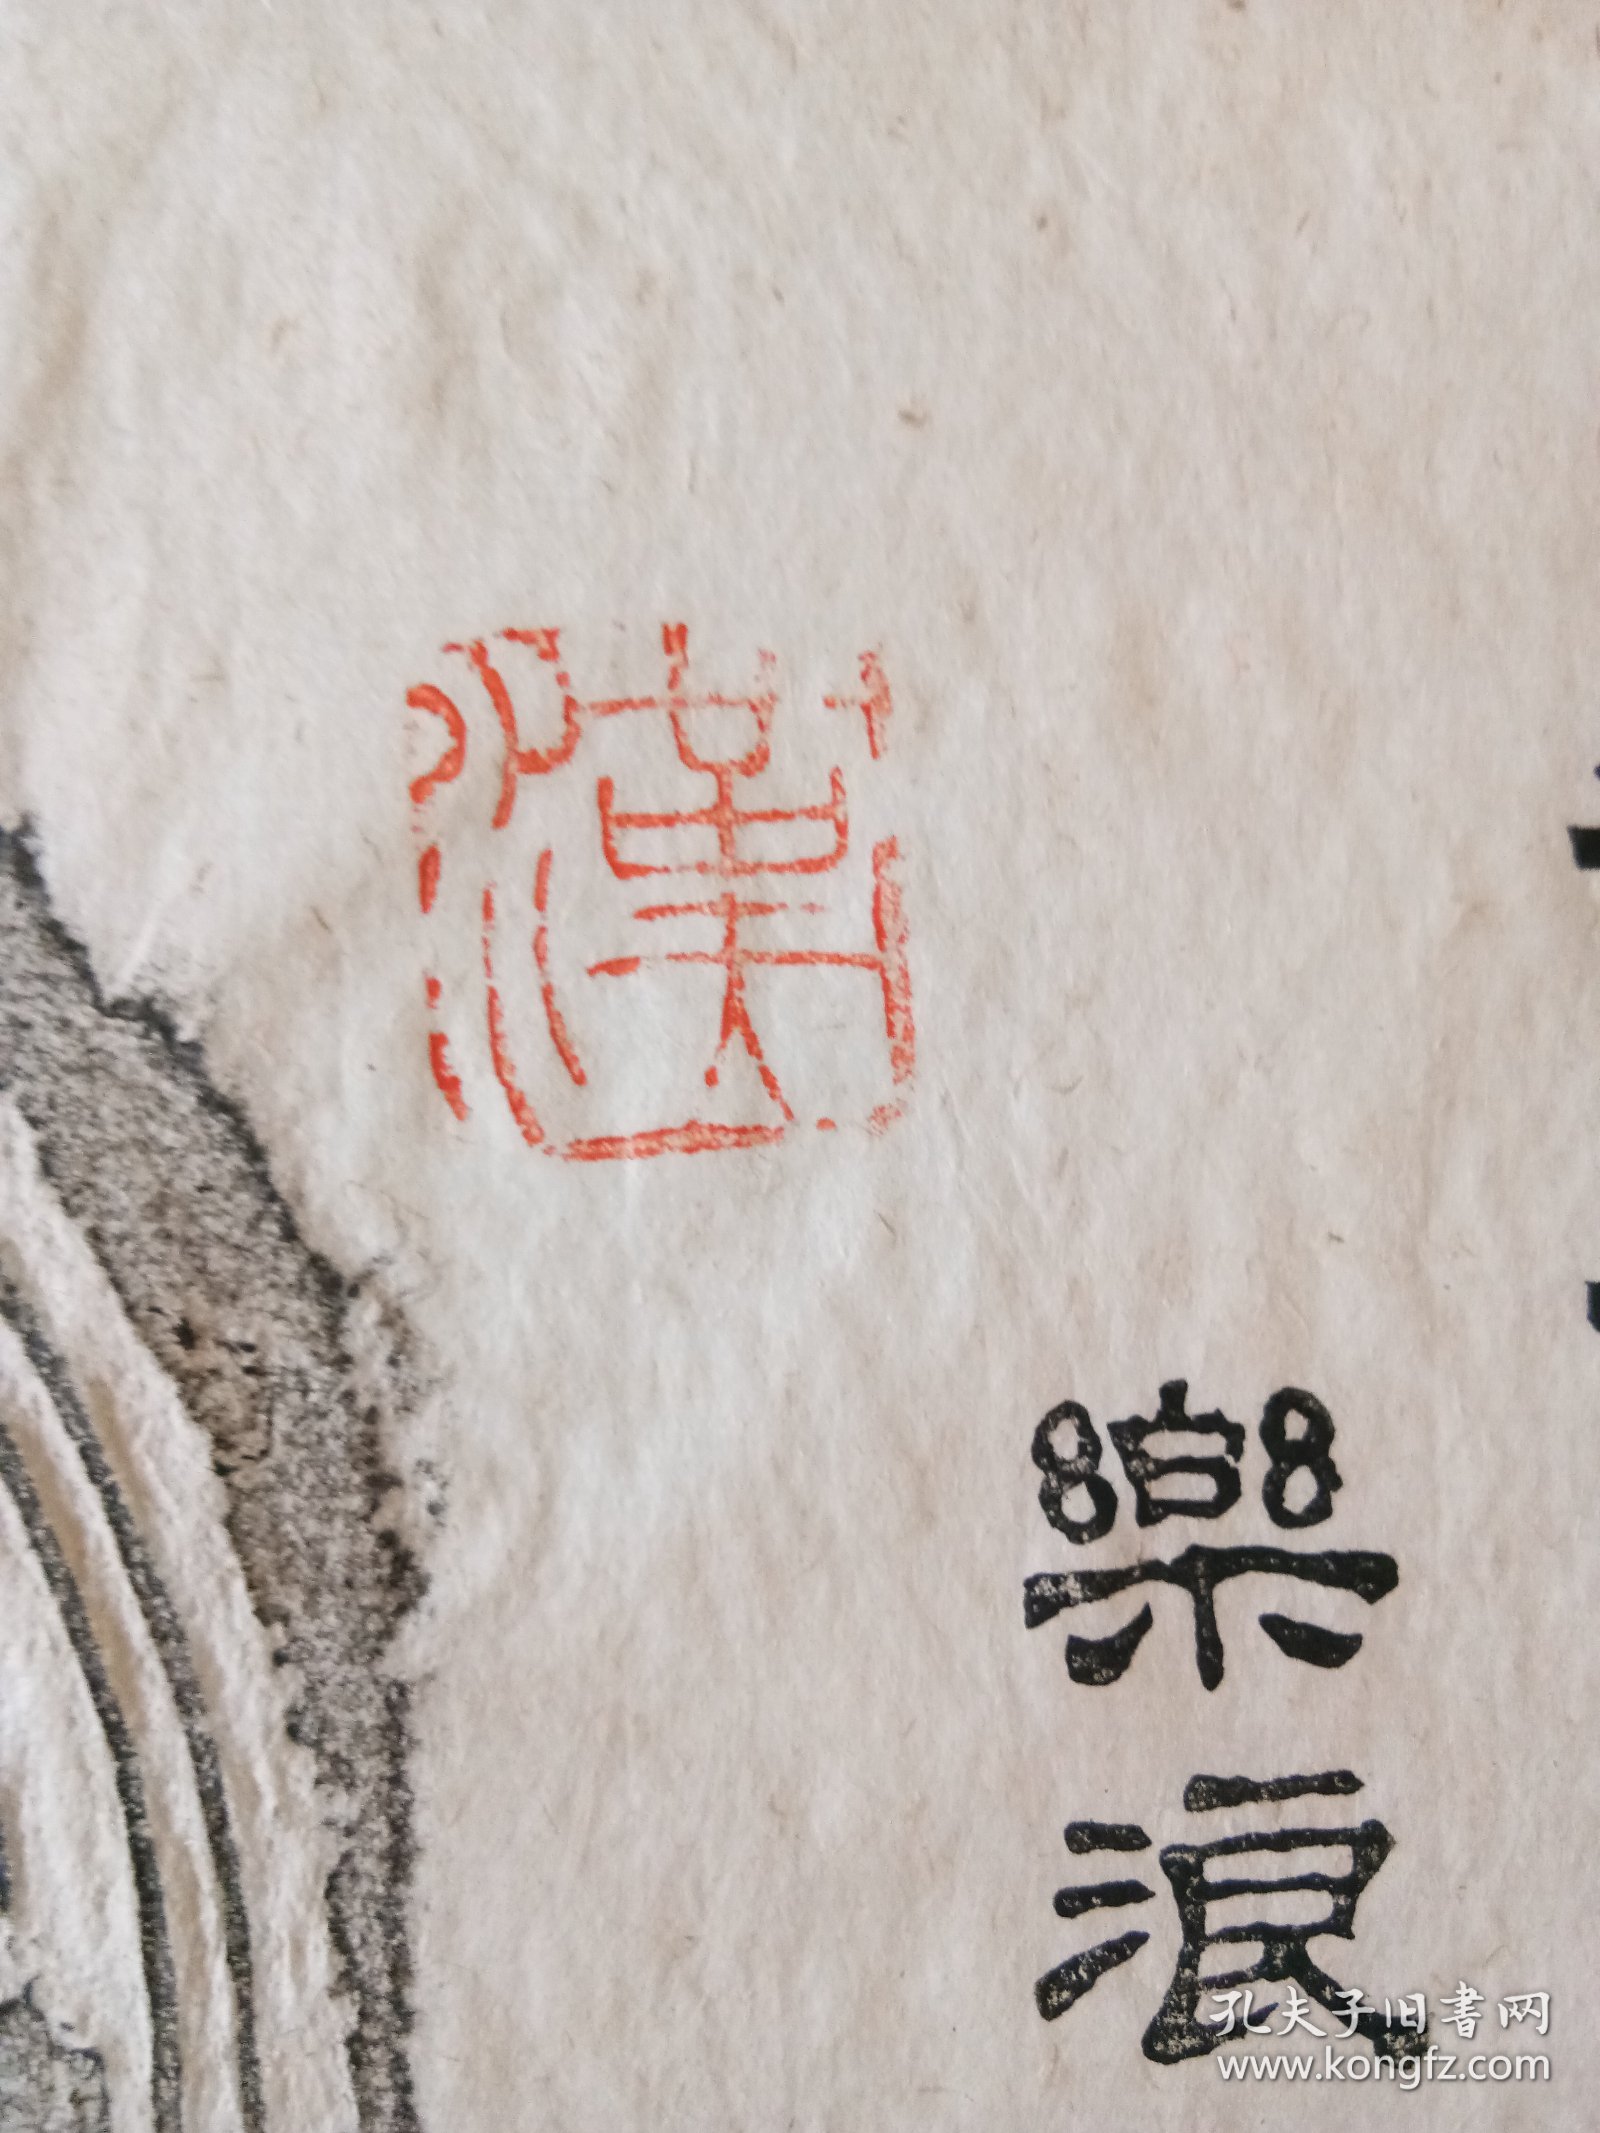 漢
樂浪
孔夫子旧書网
www.kongfz.com